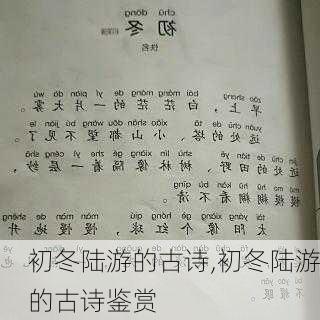 chū dōng
初冬
佚名
zǎo shang bái máng máng de yí piàn dà wù
早上，白茫茫的一片大雾。
yuǎn chù de tǎ xiǎo shān dōu wàng bú jiàn le
远处的塔、小山都望不见了。
jìn chù de tián yě shù lín xiàng gé zhe yì céng shā
近处的田野、树林像隔着一层纱，
mó mó hú hú kàn bu qīng
模模糊糊看不清。
tài yáng xiàng gè hóng qiú màn màn de shēng
太阳像个红球，慢慢地升
初冬陆游的古诗,初冬陆游
的古诗鉴赏